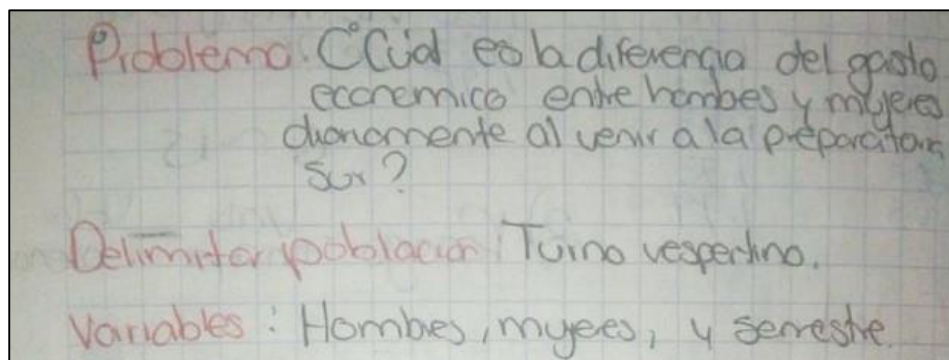 Problema: ¿Cuál es la diferencia del gasto
economico entre hombres y mujeres
diariamente al venir a la preparatoria
sur?
Delimitar población: Turno vespertino.
Variables: Hombres, mujeres, y semestre.